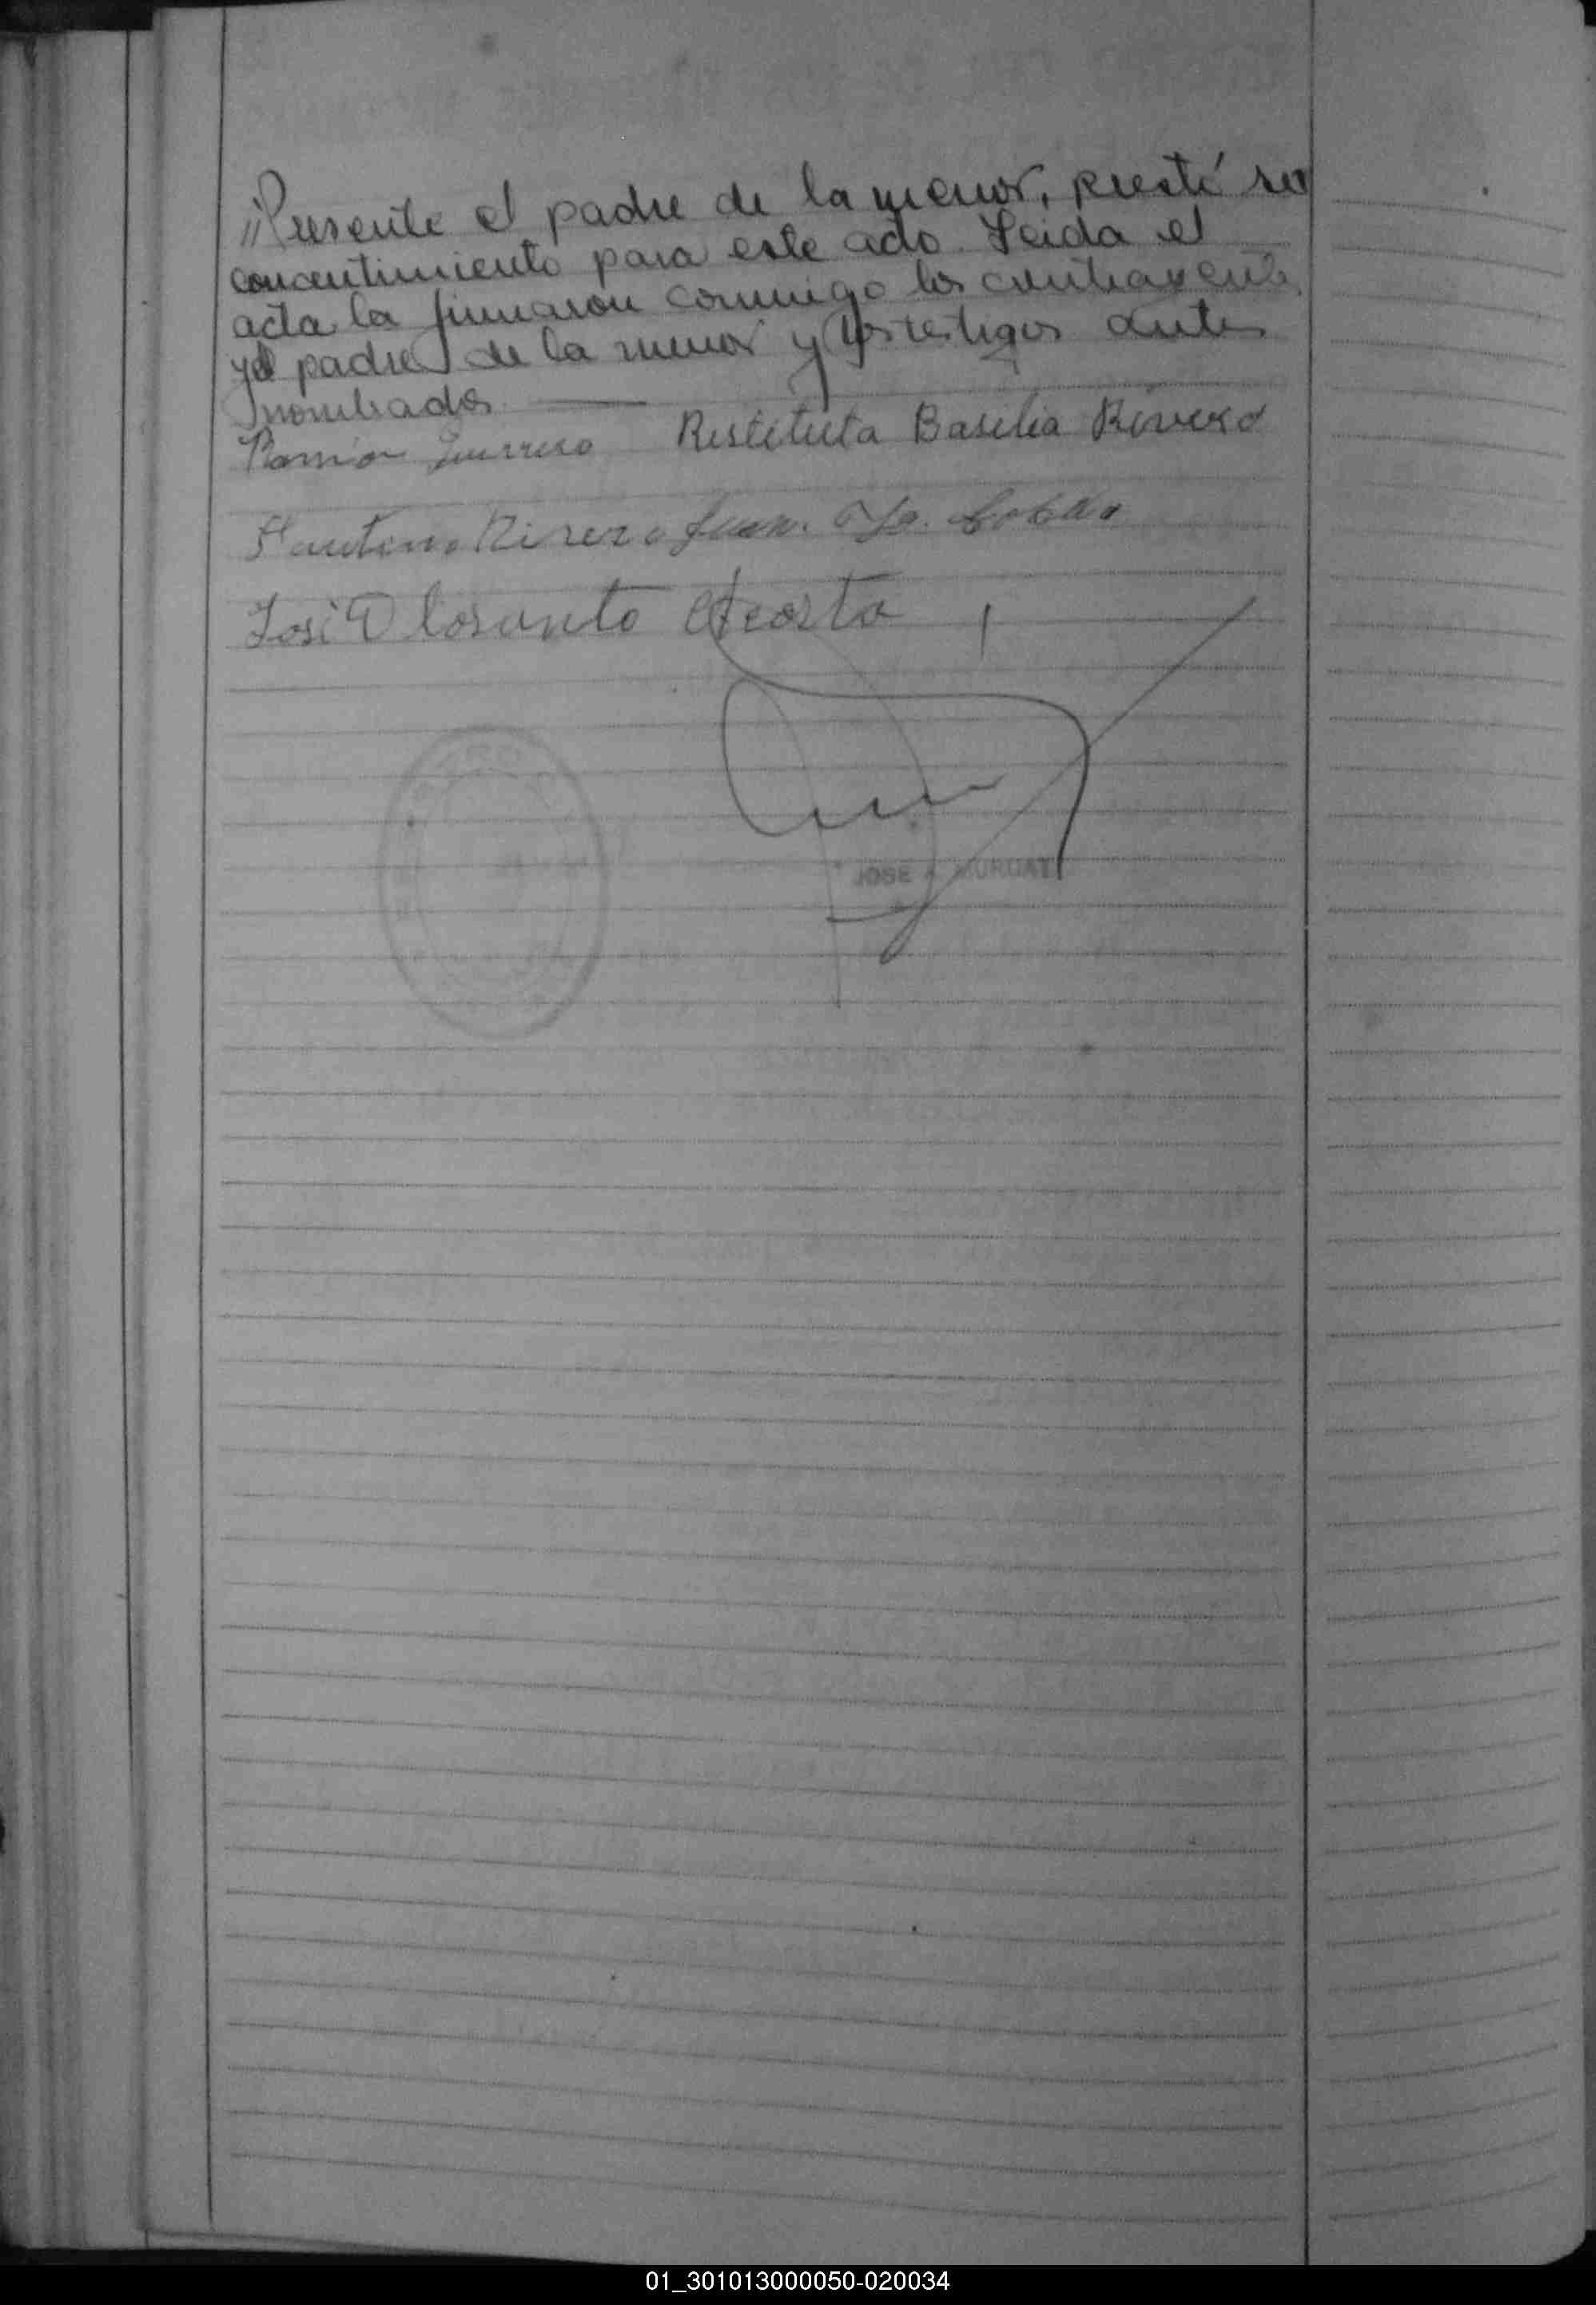 //Presente el padre de la menor, prestó su
concentimiento para este acto. Leida el
acta la firmaron conmigo los contrayente
y el padre de la menor y los testigos antes
nombrados.
Ramón Guerrero Restituta Basilia Rivero
Rivero Juan
José D Losanto Acosta
JOSE A. MURUAT
01_301013000050-020034